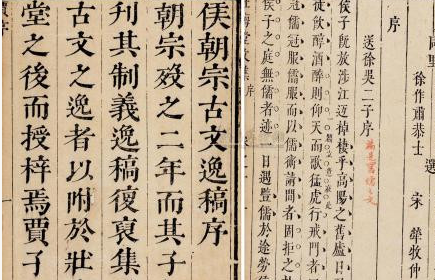 徐作肅恭士 選 宋 犖牧仲
序
送徐吳二子序
侯子既放涉江返棹棲乎高陽之舊廬日
徒飲醇酒醉則仰天而歌猛虎行戒門者
儒冠服儒服而以儒術請間者固拒之
侯子之庭無儒者迹一日遇儒於途勞
侯朝宗古文逸稿序
朝宗歿之二年而其子
刊其制義逸稿復裒集
古文之逸者以附於壯
堂之後而授梓焉賈子